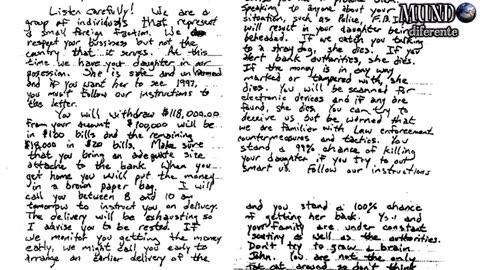 Listen Carefully! We are a
group of individuals that represent
a small foreign faction. We do
respect your bussiness but not the
country that it serves. At this
time we have your daughter in our
posession. She is safe and unharmed
and if you want her to see 1997,
you must follow our instructions to
the letter.
You will withdraw $118,000.00
from your account. $100,000 will be
in $100 bills and the remaining
$18,000 in $20 bills. Make sure
that you bring an adequate size
attache to the bank. When you
get home you will put the money
in a brown paper bag. I will
call you between 8 and 10 am
tomorrow to instruct you on delivery.
The delivery will be exhausting so
I advise you to be rested. If
we monitor you getting the money
early, we might call you early to
arrange an earlier delivery of the
Speaking to anyone about your
situation, such as Police, F.B.I.
will result in your daughter being
beheaded. If we catch you talking
to a stray dog, she dies. If you
alert bank authorities, she dies.
If the money is in any way
marked or tampered with, she
dies. You will be scanned for
electronic devices and if any are
found, she dies. You can try to
deceive us but be warned that
we are familiar with Law enforcement
countermeasures and tactics. You
stand a 99% chance of killing
your daughter if you try to out
smart us. Follow our instructions
and you stand a 100% chance
of getting her back. You and
your family are under constant
scrutiny as well as the authorities.
Don't try to grow a brain
John. You are not the only
fat cat around so don't think
MUNDO
diferente